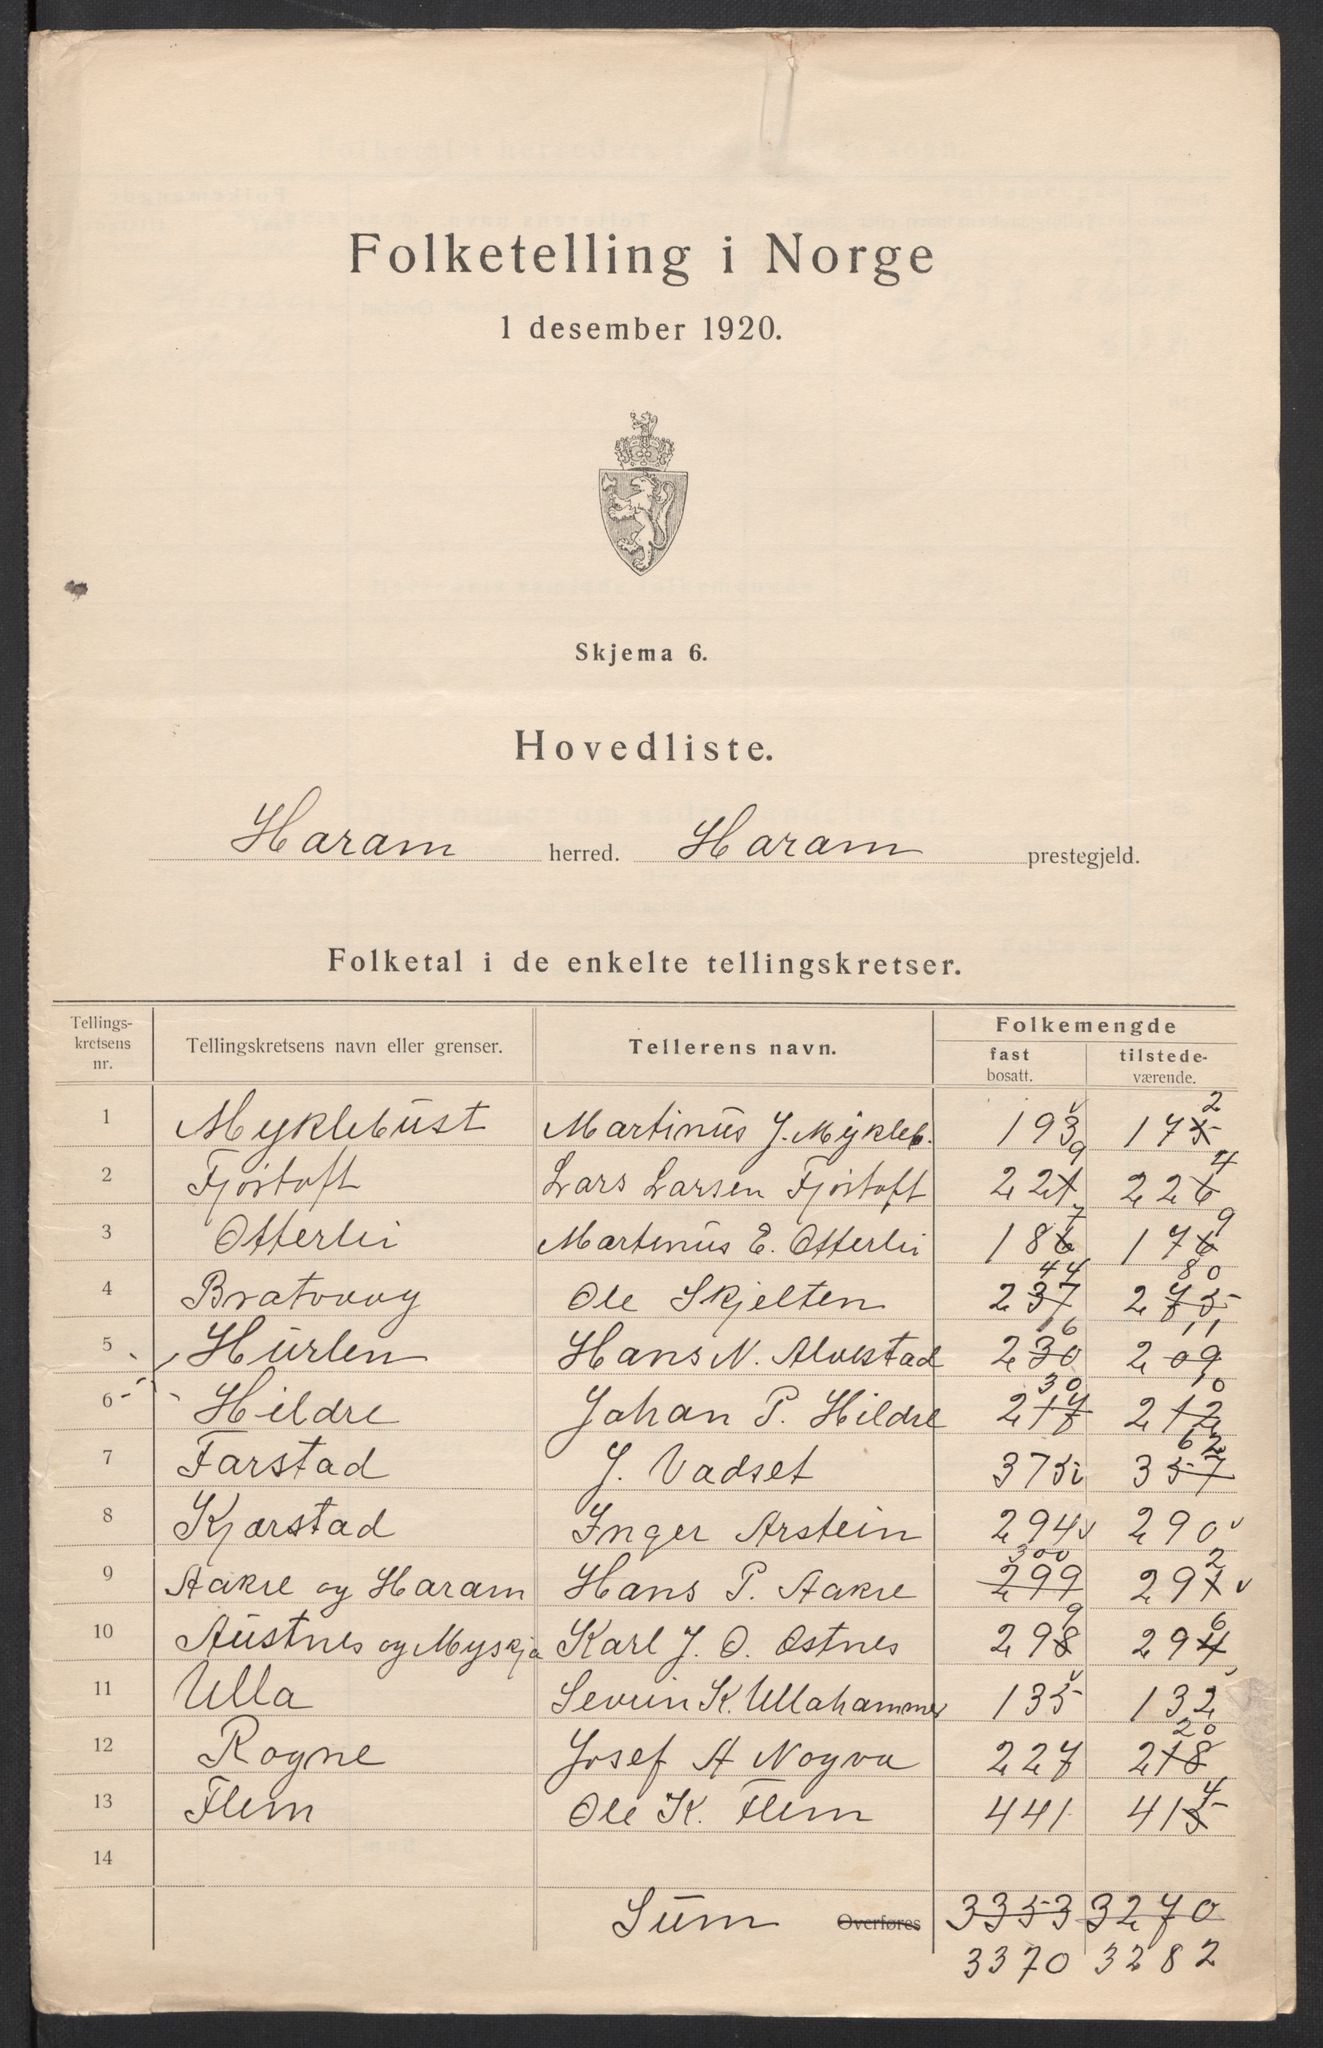 Folketelling i Norge
1 desember 1920.
Skjema 6.
Hovedliste.
Haram herred. Haram prestegjeld.
Folketal i de enkelte tellingskretser.
Tellings-kretsens nr. Tellingskretsens navn eller grenser. Tellerens navn. Folkemengde
fast bosatt. tilstede-værende.
1 Myklebust Martinus J. Mykleb. 193 175 2
2 Fjørtoft Lars Larsen Fjørtoft 221 9 226 4
3 Otterlei Martinus E. Otterlei 186 7 176 9
4 Bratvaag Ole Skjelten 237 44 275 80
5 Hurlen Hans N. Alvestad 230 16 209 11
6 Hildre Johan P. Hildre 217 30 212 10
7 Farstad J. Vadset 375 357 62
8 Kjærstad Inger Arstein 294 290
9 Aakre og Haram Hans P. Aakre 299 300 291 2
10 Austnes og Myskja Karl J. O. Ostnes 298 9 294 6
11 Ulla Severin K. Ullahammer 135 132
12 Rogne Josef A Nogva 227 218 20
13 Flem Ole K. Flem 441 415 4
14
Sum Overføres 3353 3270
3370 3282